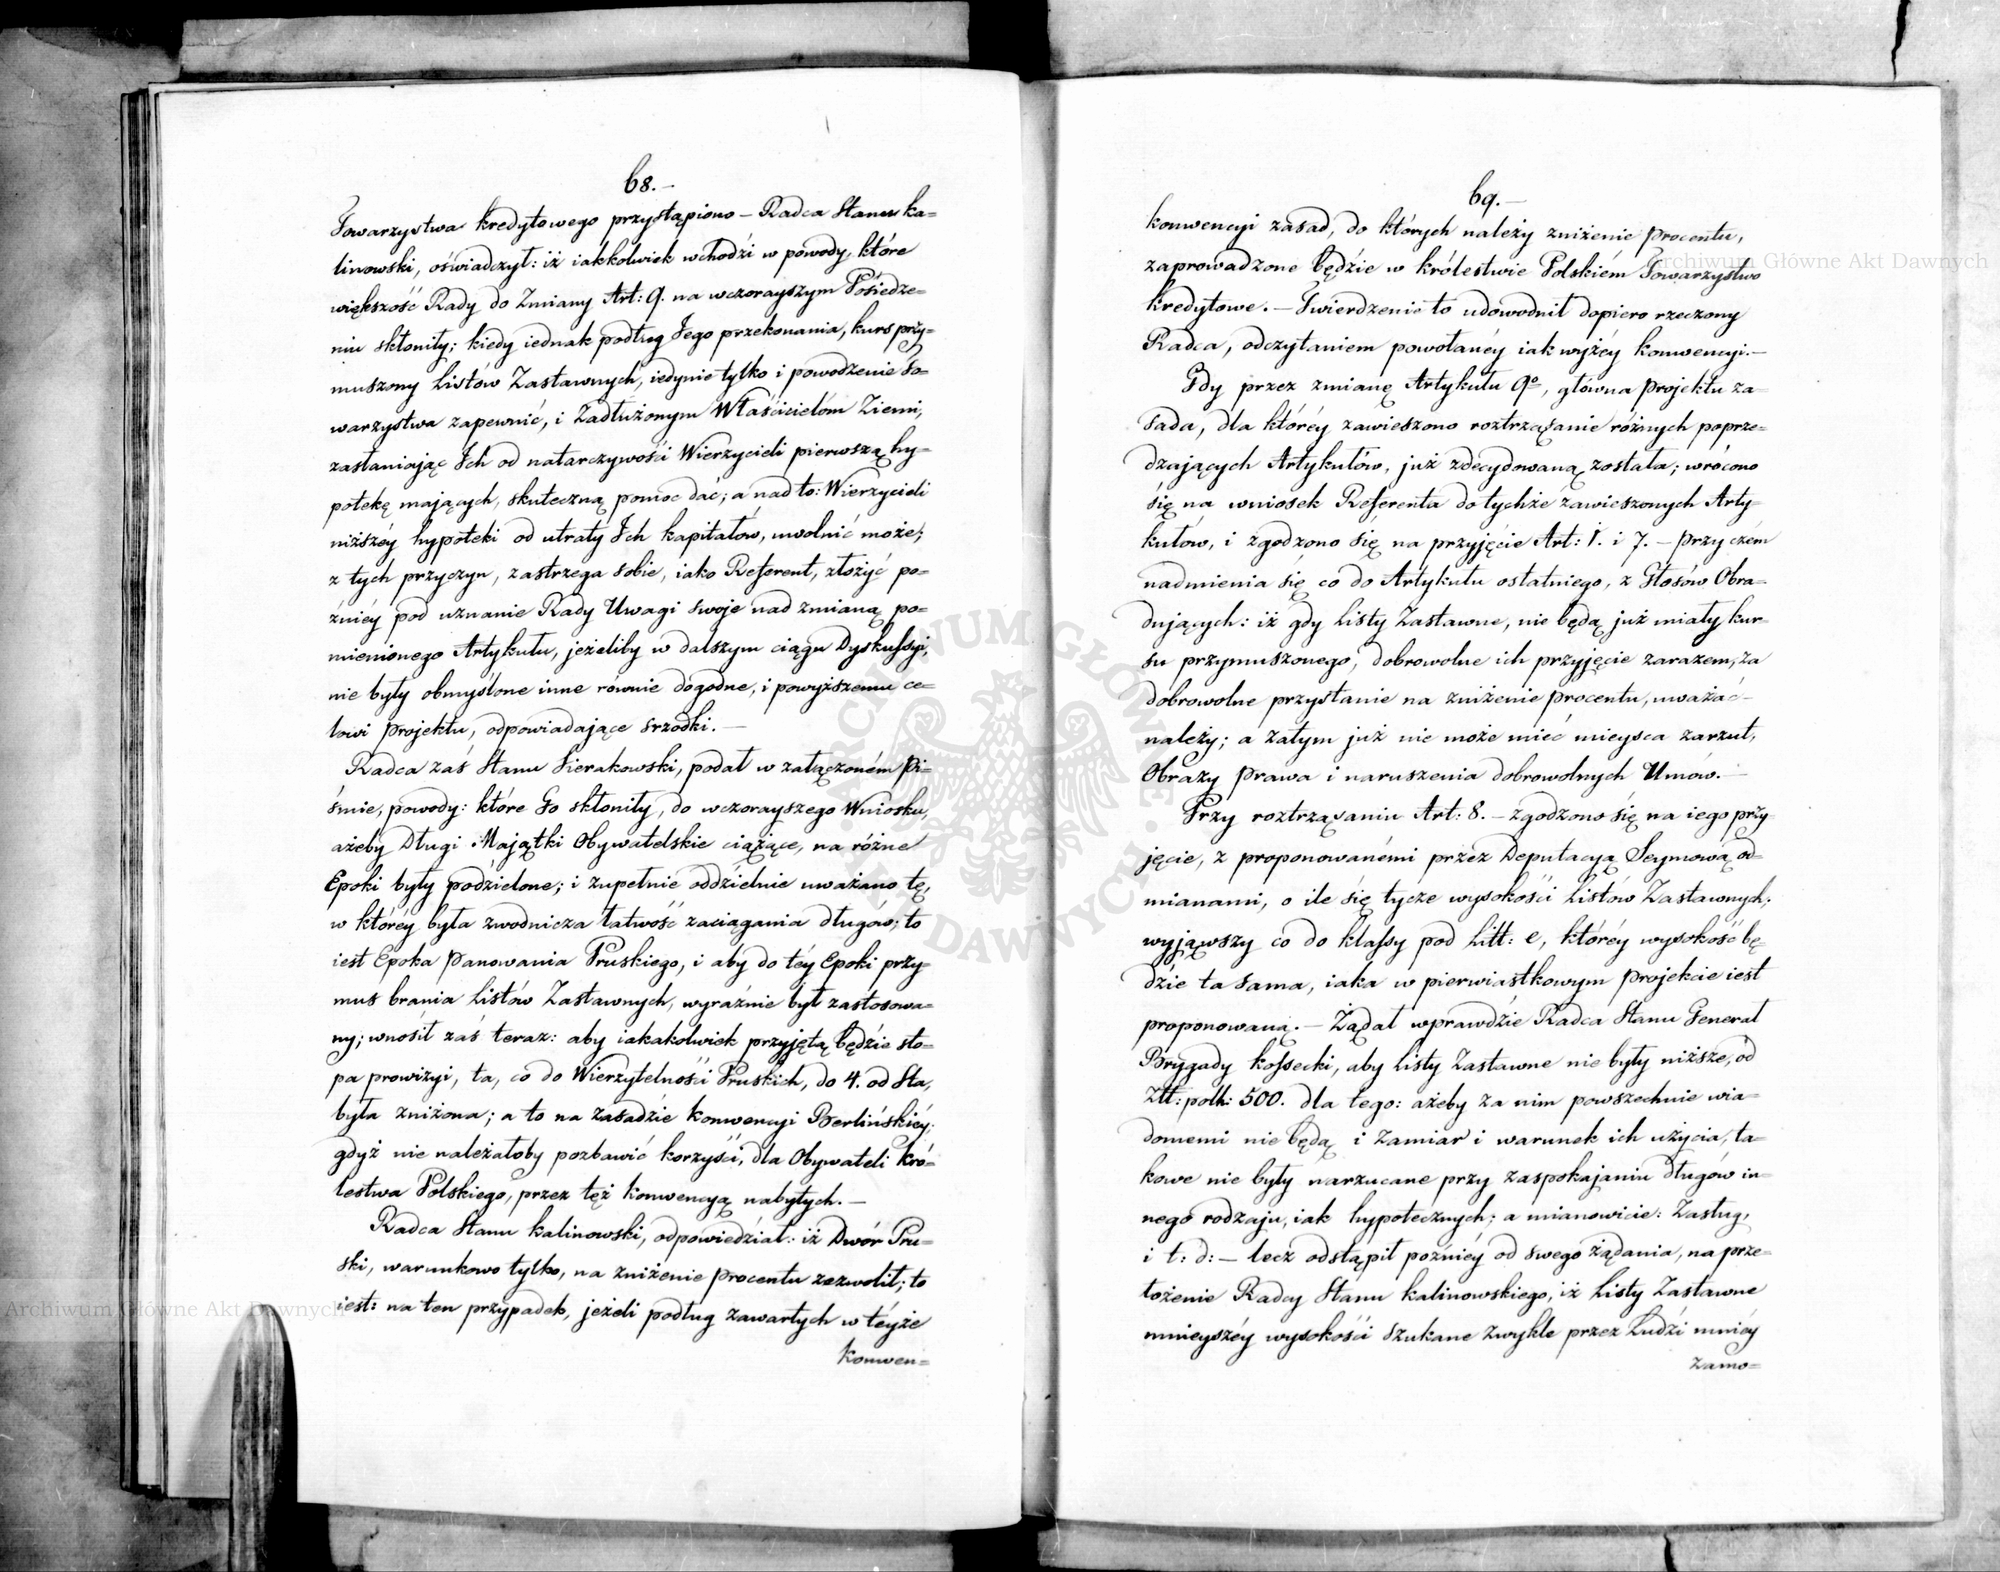 68.-
Towarzystwa kredytowego przystąpiono – Radca Stanu ka=
linowski, oświadczył: iż iakkolwiek wchodzi w powody, które
większość Rady do Zmiany Art: 9. na wczorayszym Posiedze=
niu skłoniły; kiedy iednak podług Jego przekonania, kurs przy=
muszony Listów Zastawnych, iedynie tylko i powodzenie To=
warzystwa zapewnić, i Zadłużonym Właścicielóm Ziemi,
zasłaniaiąc Ich od natarczywości Wierzycieli pierwszą hy=
potekę mających, skuteczną pomoc dać; a nad to: Wierzycieli
niższéy hypoteki od utraty Ich kapitałów, uwolnić może;
z tych przyczyn, zastrzega sobie, iako Referent, złożyć po=
źniéy pod uznanie Rady Uwagi swoje nad zmianą po=
mienionego Artykułu, jeżeliby w dalszym ciągu Dyskussyi,
nie były obmyślone inne równie dogodne, i powyższemu ce=
lowi Projektu, odpowiadaiące srzodki. –
Radca zaś Stanu Sierakowski, podał w załączoném Pi=
śmie, powody: które Go skłoniły, do wczorayszego Wniosku,
ażeby Długi Majątki Obywatelskie ciążące, na różne
Epoki były podzielone; i zupełnie oddzielnie uważano tę,
w któréy była zwodnicza łatwość zaciągania długów; to
iest Epoka Panowania Pruskiego, i aby do téy Epoki przy=
mus brania Listów Zastawnych, wyraźnie był zastosowa=
ny; wnosił zaś teraz: aby iakakolwiek przyjętą będzie sto=
pa prowizyi, ta, co do Wierzytelności Pruskich, do 4. od Sta,
była zniżona; a to na zasadzie konwencyi Berlińskiéy;
gdyż nie należałoby pozbawić korzyści, dla Obywateli Kró=
lestwa Polskiego, przez tęż konwencyą nabytych. –
Radca Stanu kalinowski, odpowiedział: iż Dwór Pru=
ski, warunkowo tylko, na zniżenie procentu zezwolił; to
iest: na ten przypadek, jeżeli podług zawartych w téyże
Konwen=
69.-
konwencyi zasad, do których należy zniżenie Procentu,
zaprowadzone będzie w królestwie Polskiém Towarzystwo
kredytowe. – Twierdzenie to udowodnił dopiero rzeczony
Radca, odczytaniem powołanéy iak wyżéy konwencyi. –
Gdy przez zmianę Artykułu 9º, główna Projektu za=
sada, dla któréy zawieszono roztrząsanie różnych poprze=
dzających Artykułów, już zdecydowaną została; wrócono
się na wniosek Referenta do tychże zawieszonych Arty=
kułów, i zgodzono się na przyjęcie Art: 1. i 7. – Przy czém
nadmienia się co do Artykułu ostatniego, z Głosów Obra=
dujących: iż gdy Listy Zastawne, nie będą już miały kur=
su przymuszonego, dobrowolne ich przyjęcie zarazem, za
dobrowolne przystanie na zniżenie Procentu, uważać –
należy; a zatym już nie może mieć mieysca zarzut,
Obrazy Prawa i naruszenia dobrowolnych Umów. –
Przy roztrząsaniu Art: 8. – zgodzono się na iego przy=
jęcie, z proponowanémi przez Deputacyą Seymową od=
mianami, o ile się tycze wysokości Listów Zastawnych;
wyjąwszy co do klassy pod Litt: e, któréy wysokość bę=
dzie ta sama, iaka w pierwiastkowym Projekcie iest
proponowaną. – Żądał wprawdzie Radca Stanu Generał
Brygady kossecki, aby Listy Zastawne nie były niższe, od
Złł: polh: 500. dla tego: ażeby za nim powszechnie wia=
domemi nie będą i zamiar i warunek ich użycia, ta=
kowe nie były narzucane przy zaspokajaniu długów in=
nego rodzaju, iak hypotecznych; a mianowicie: Zasług,
i t: d: – lecz odstąpił poźniéy od swego żądania, na prze=
łożenie Radcy Stanu kalinowskiego, iż Listy Zastawne
mnieyszéy wysokości szukane zwykle przez Ludzi mniéy
zamo=
Archiwum Główne Akt Dawnych
Archiwum Główne Akt Dawnych
ARCHIWUM GŁÓWNE AKT DAWNYCH